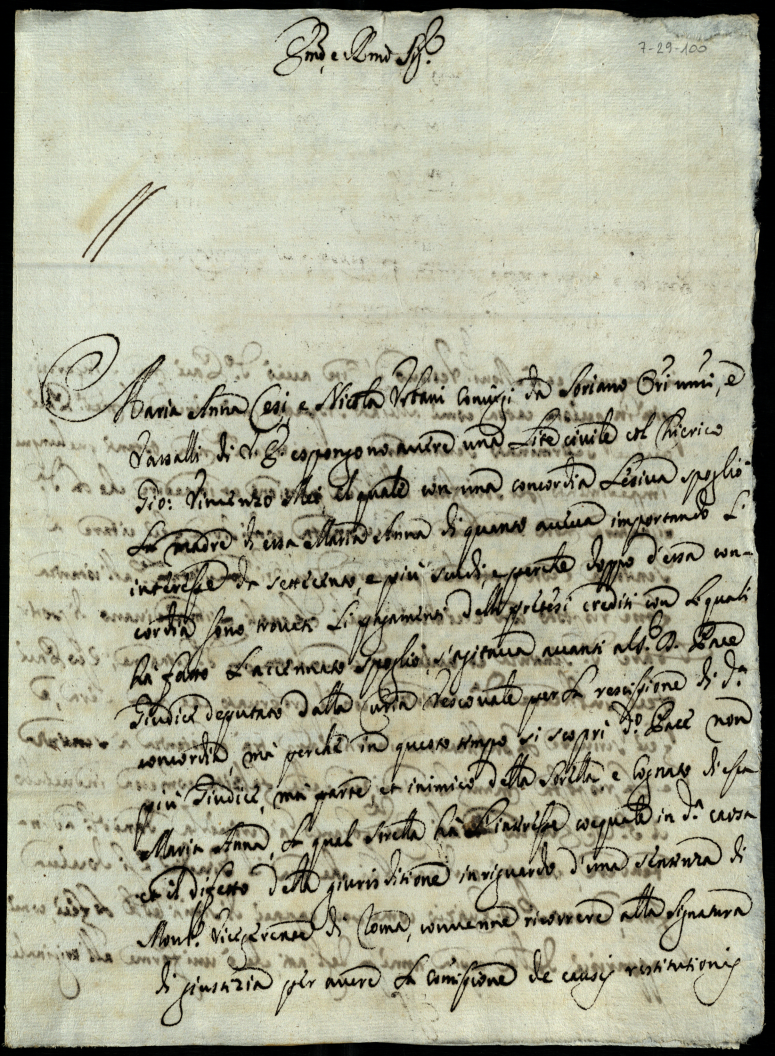 7-29-100
Em̃o, e Rmo Sig.re
Maria Anna Cesi, e Nicola Urbani coniugi da Soriano Or:i umi, e
Vassalli di V. E. espongono avere una Lite civile col Chierico
Gio: Vincenzo, il quale con una concordia Lesiva spogliò
La madre di essa Maria Anna di quanto aveva importando L'
interesse da settecento, e più scudi, e perche doppo d'essa con-
cordia sono trovati Li pagamenti delli pretesi crediti con Li quali
ha fatto L'accennato spoglio, s'agitava avanti al S.r D. Pace
Giudice deputato dalla Curia Vescovale per La rescissione di d.a
concordia, mà perche in questo tempo si scoprì d.o Pace non
più Giudice, mà parte, et inimico della sorella, e Cognato di essa
Maria Anna, La qual sorella hà L'interesse coequale in d.a causa
et il difetto della giurisditione in riguardo d'una sentenza di
Mons.r Vicegerente di Roma, convenne ricorrere alla Signatura
di giustizia per avere La comissione de causis restitutionis